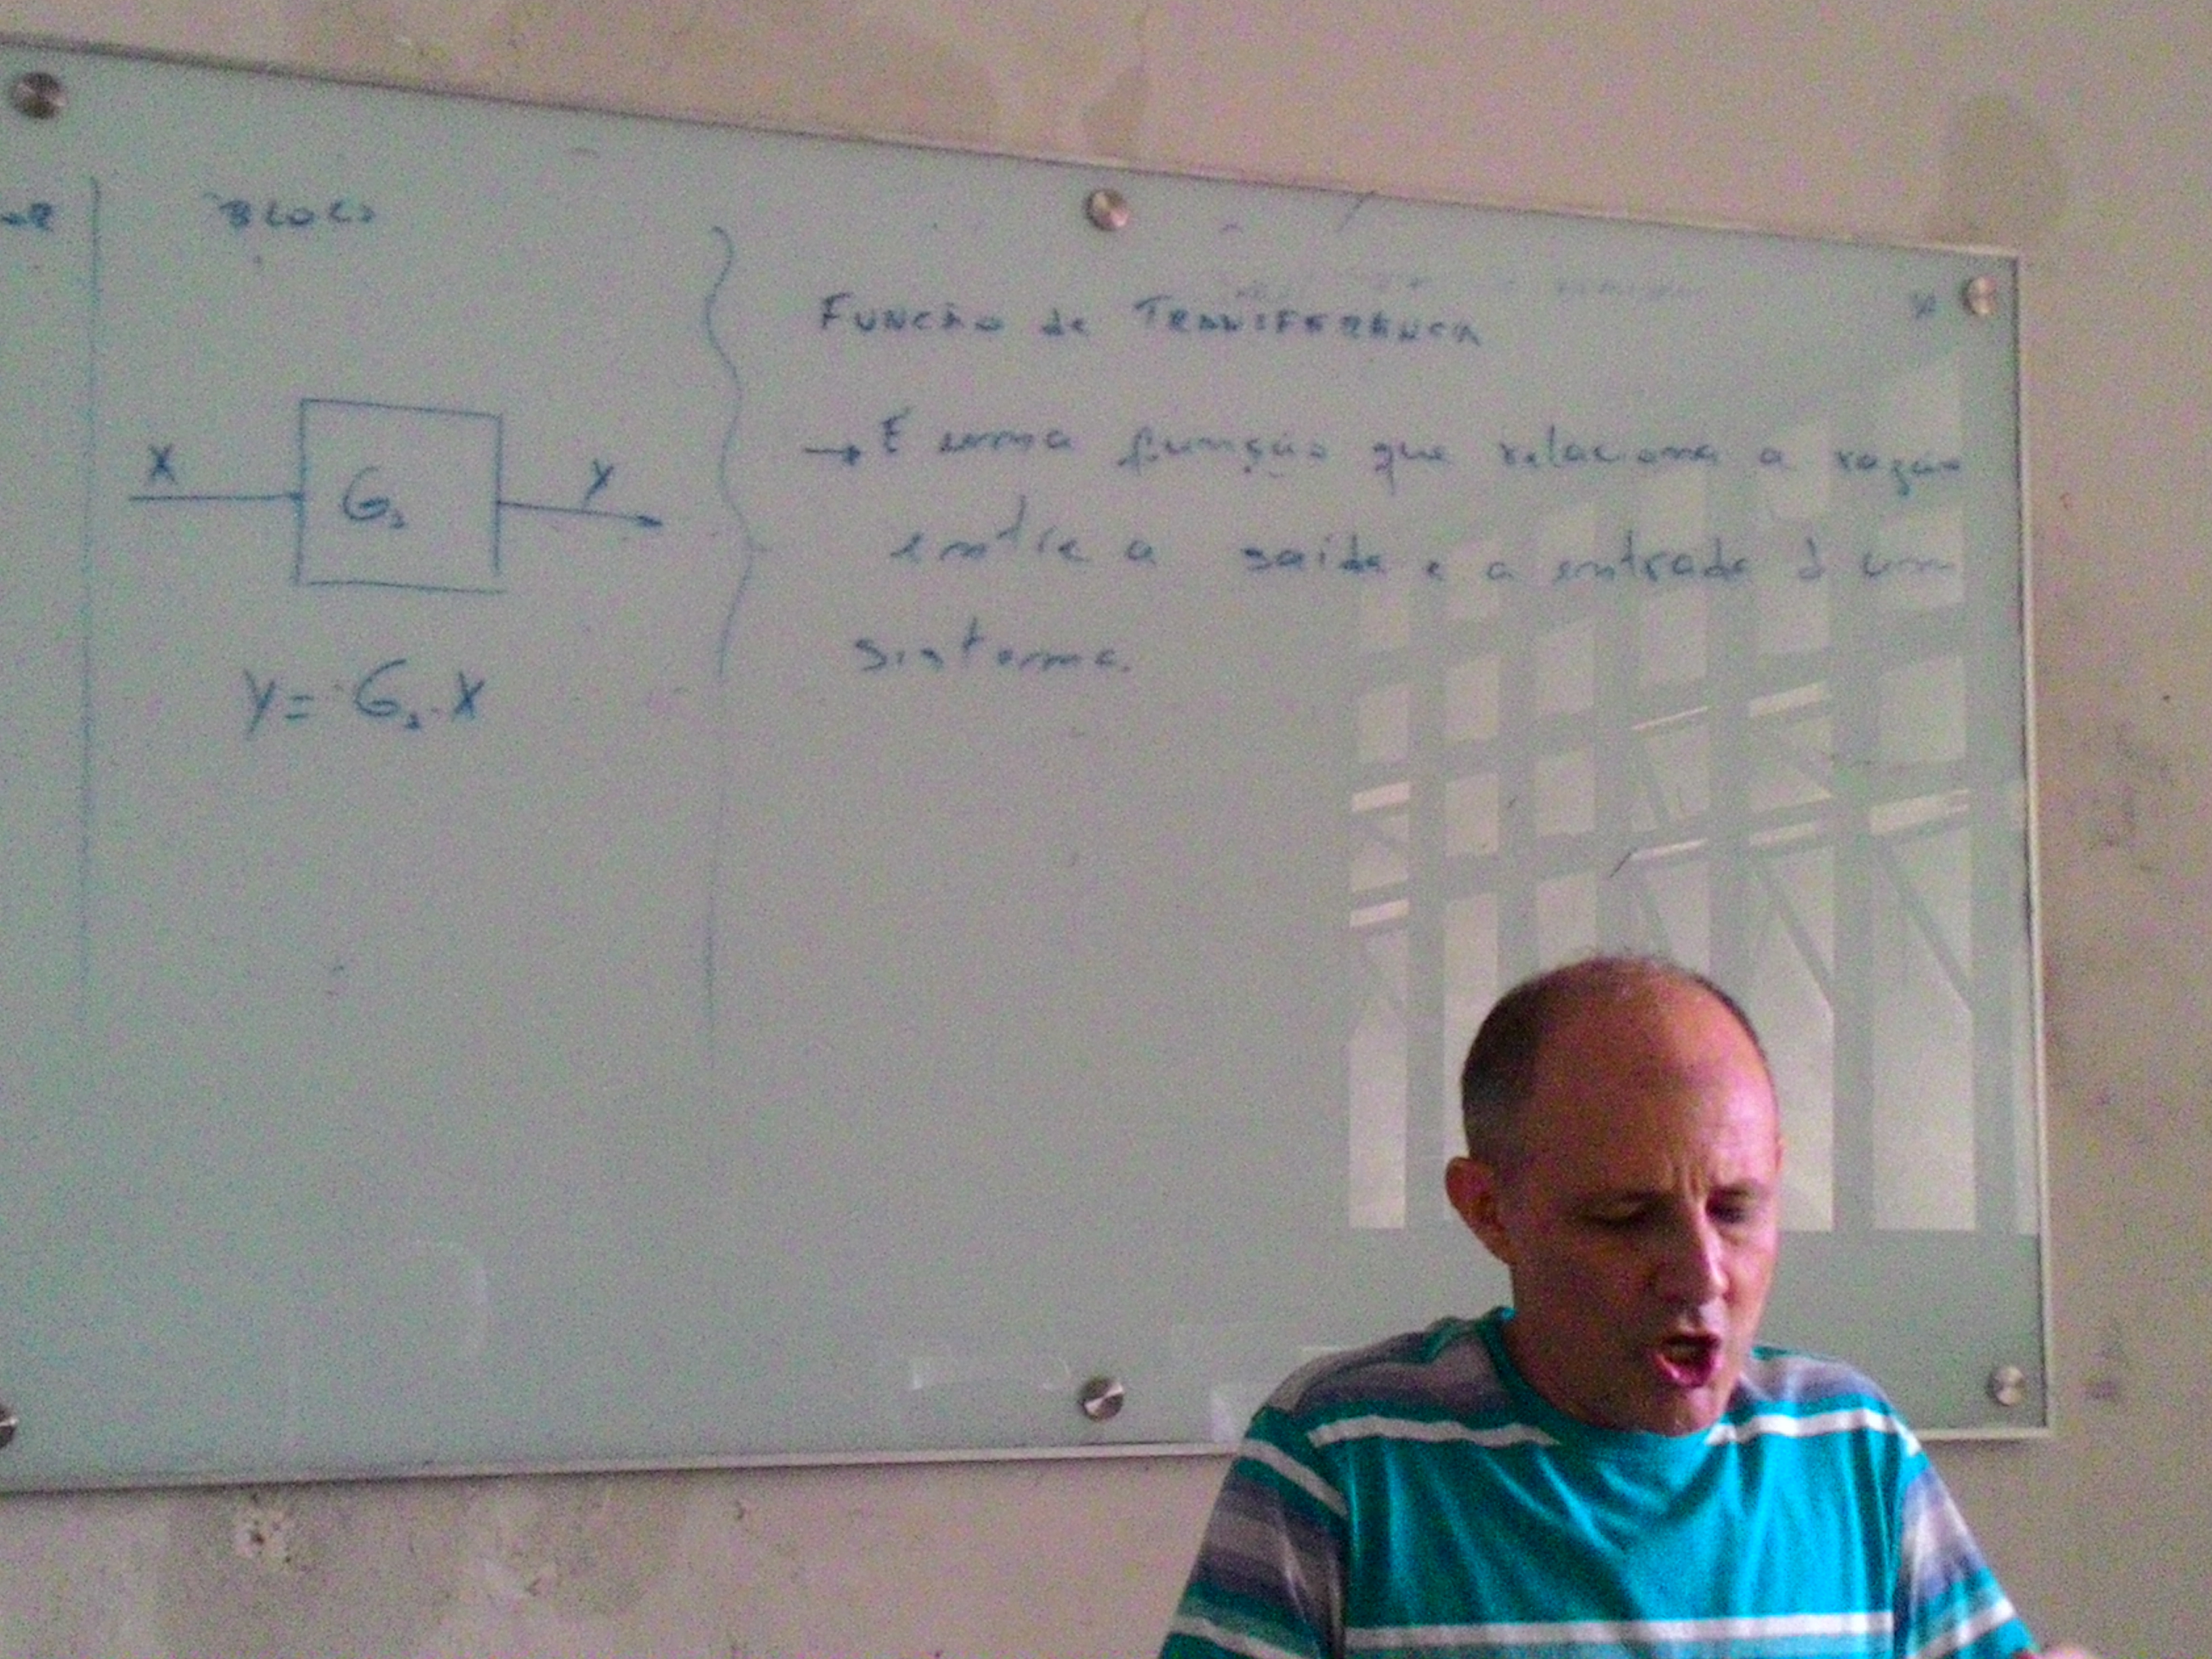 BLOCO
X
G₁
Y
Y = G₁.X
FUNCÃO de TRANSFERÊNCIA
→ É uma função que relaciona a razão
entre a saída e a entrada d um
sistema.